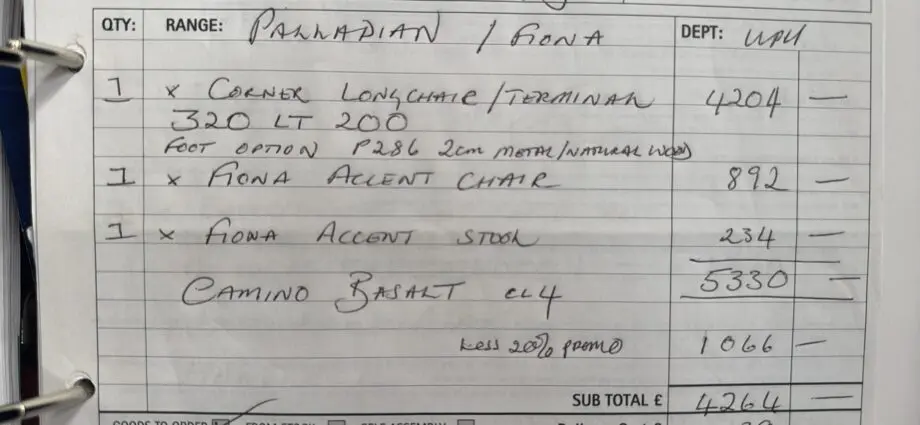 QTY: RANGE: PALLADIAN / FIONA DEPT: UPH
1 x CORNER LONGCHAIR/TERMINAL 4204 —
320 LT 200
FOOT OPTION P286 2cm METAL/NATURAL WOOD
1 x FIONA ACCENT CHAIR 892 —
1 x FIONA ACCENT STOOL 234 —
CAMINO BASALT CL4 5330 —
Less 20% PROMO 1066 —
SUB TOTAL £ 4264 —
GOODS TO ORDER FROM STOCK SELF ASSEMBLY